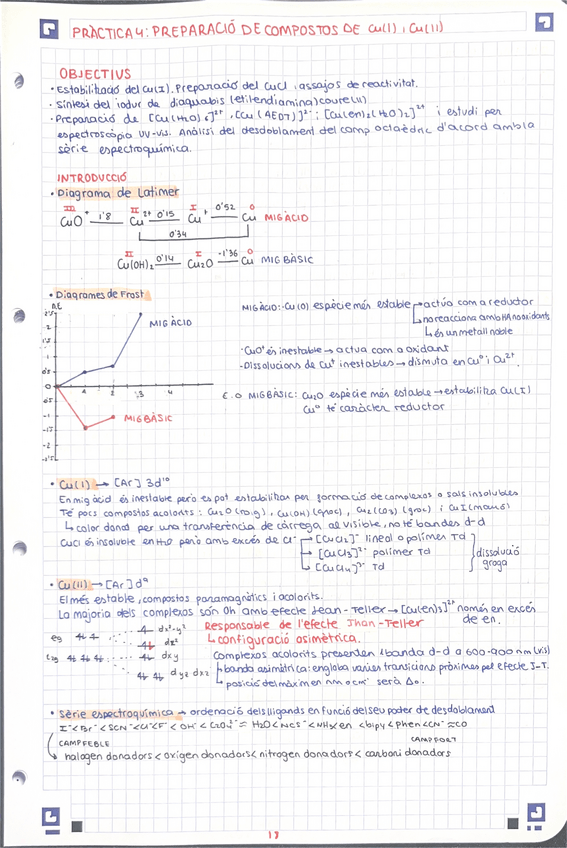 PRÀCTICA 4: PREPARACIÓ DE COMPOSTOS DE Cu(I) i Cu(II)
OBJECTIUS
· Estabilització del Cu(I). Preparació del CuCl i assajos de reactivitat.
· Síntesi del iodur de diaquabis(etilendiamina)coure(II)
· Preparació de [Cu(H₂O)₆]²⁺, [Cu(AEDT)]²⁻ i [Cu(en)₂(H₂O)₂]²⁺ i estudi per
espectroscòpia UV-vis. Anàlisi del desdoblament del camp octaèdric d'acord amb la
sèrie espectroquímica.
INTRODUCCIÓ
· Diagrama de Latimer
III II I 0
CuO⁺ 1'8 Cu²⁺ 0'15 Cu⁺ 0'52 Cu MIG ÀCID
0'34
II I 0
Cu(OH)₂ 0'14 Cu₂O -1'36 Cu MIG BÀSIC
· Diagrames de Frost
MIG ÀCID
MIG BÀSIC
MIG ÀCID: Cu(0) espècie més estable → actúa com a reductor
↳ no reacciona amb HA no oxidants
↳ és un metall noble
· CuO⁺ és inestable → actua com a oxidant
· Dissolucions de Cu⁺ inestables → dismuta en Cu⁰ i Cu²⁺.
MIG BÀSIC: Cu₂O espècie més estable → estabilitza Cu(I)
Cu⁰ té caràcter reductor
· Cu(I) → [Ar] 3d¹⁰
En mig àcid és inestable però es pot estabilitzar per formació de complexos o sals insolubles
↳ color donat per una transferència de càrrega al visible, no té bandes d-d
CuCl és insoluble en H₂O però amb excés de Cl⁻ → [CuCl₂]⁻ lineal o polímer Td
→ [CuCl₃]²⁻ polímer Td
↳ [CuCl₄]³⁻ Td
dissolució
groga
· Cu(II) → [Ar] d⁹
El més estable, compostos paramagnètics i acolorits.
La majoria dels complexos són Oh amb efecte Jean-Teller → [Cu(en)₃]²⁺ només en excés
de en.
Responsable de l'efecte Jhan-Teller
↳ configuració asimètrica.
eg dx²-y²
dz²
t2g dxy
dyz dxz
Complexos acolorits presenten 1 banda d-d a 600-900 nm (vis)
↳ banda asimètrica: engloba vàries transicions pròximes pel efecte J-T.
↳ posició del màxim en nm o cm⁻¹ serà Δo.
· Sèrie espectroquímica → ordenació dels lligands en funció del seu poder de desdoblament
I⁻ < Br⁻ < SCN⁻ < Cl⁻ < F⁻ < OH⁻ < C₂O₄²⁻ = H₂O < NCS⁻ < NH₃ < en < bipy < phen < CN⁻ = CO
CAMP FEBLE CAMP FORT
halogen donadors < oxigen donadors < nitrogen donadors < carboni donadors
18